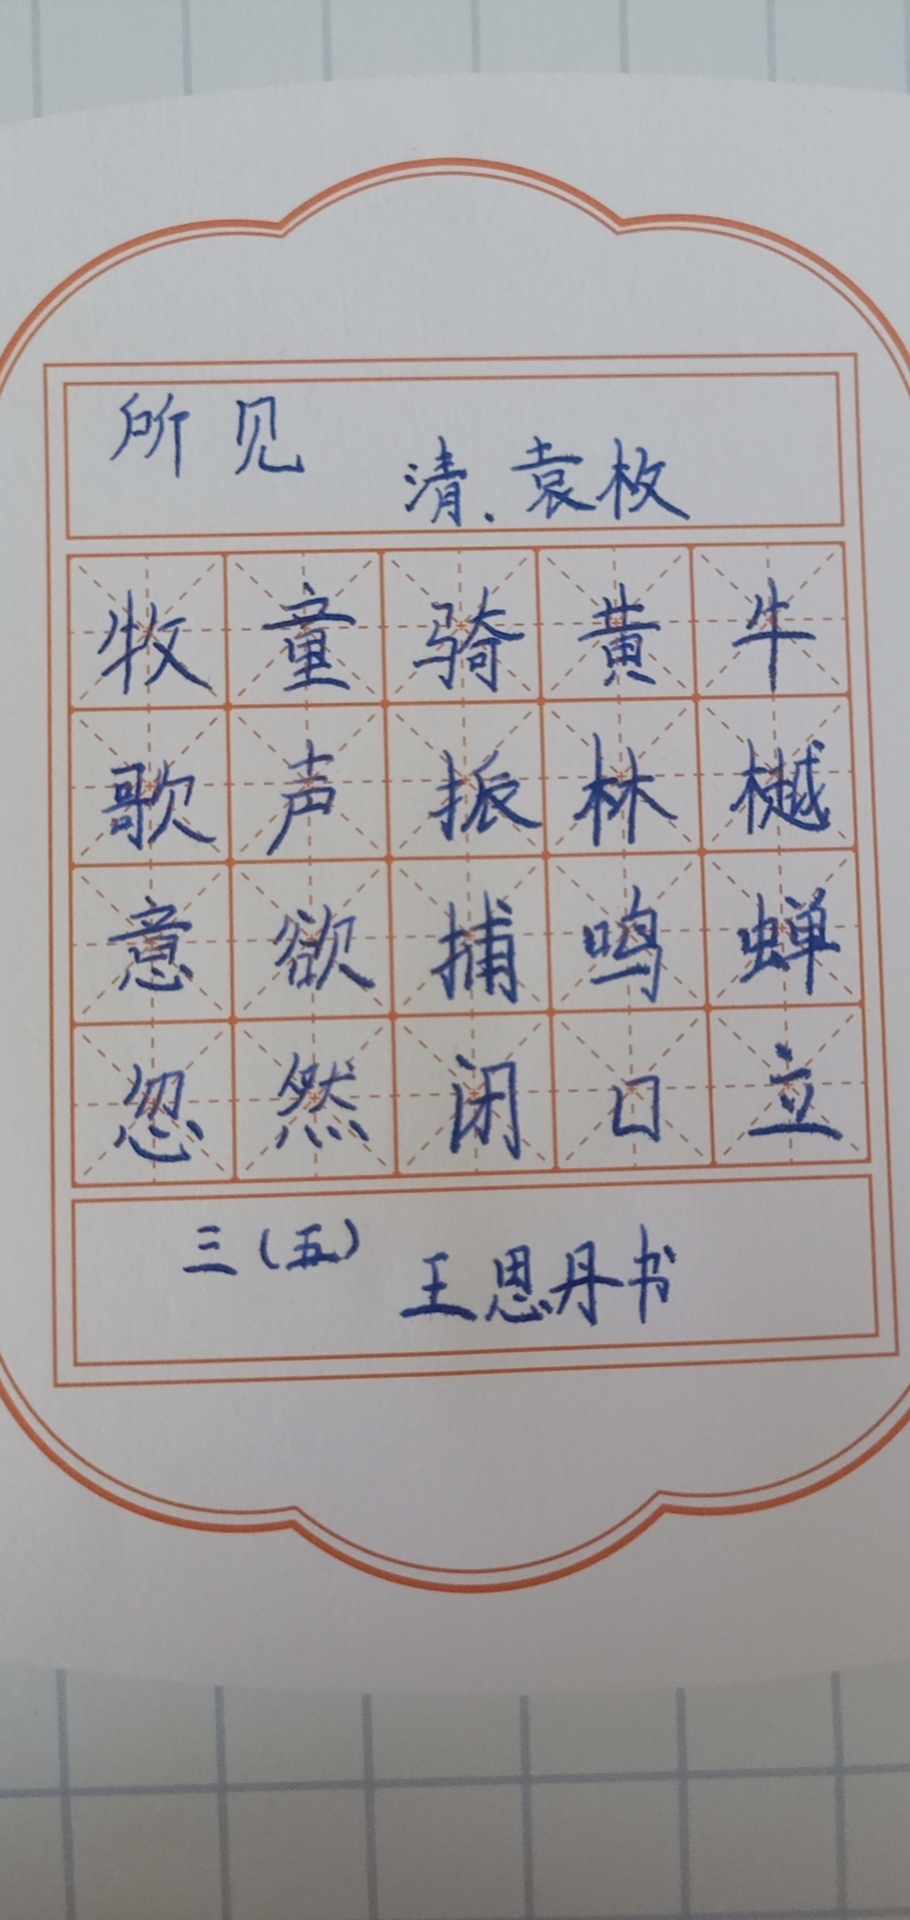 所见
清.袁枚
牧童骑黄牛
歌声振林樾
意欲捕鸣蝉
忽然闭口立
三(五) 王恩丹书